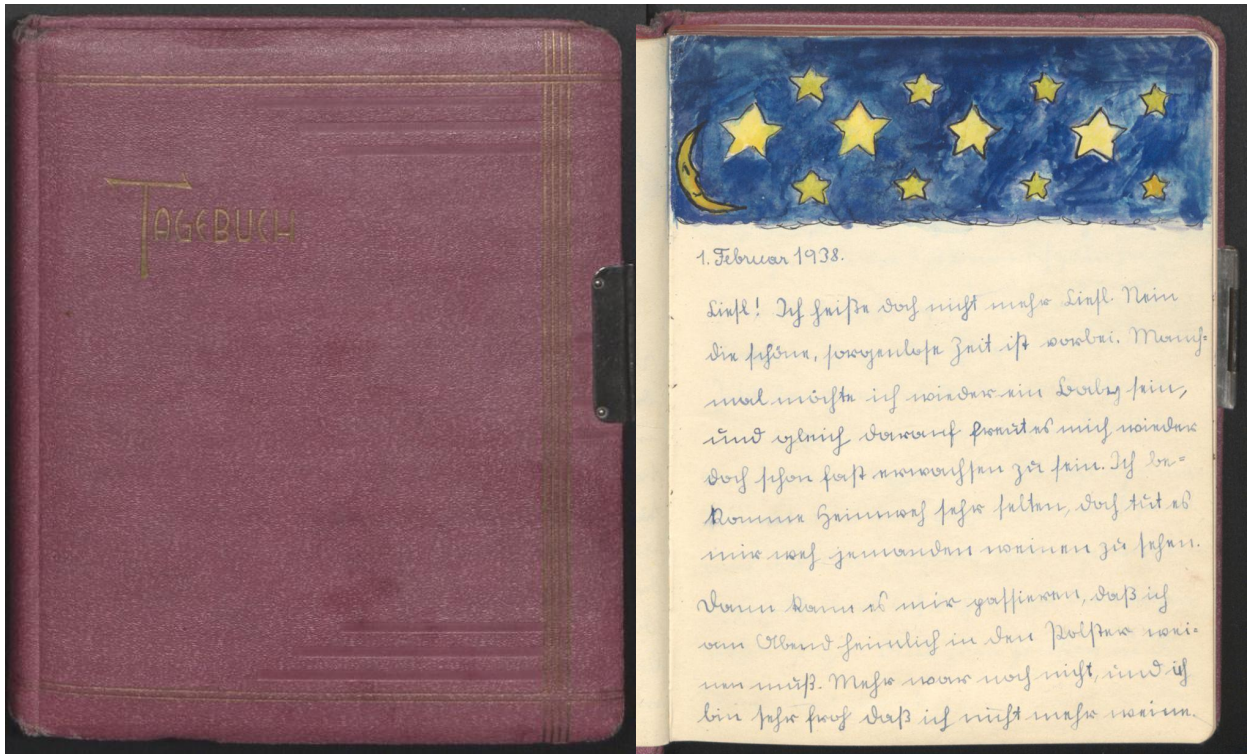 TAGEBUCH
1. Februar 1938.
Liesl! Ich heiße doch nicht mehr Liesl. Nein
die schöne, sorgenlose Zeit ist vorbei. Manch-
mal möchte ich wieder ein Baby sein,
und gleich darauf freut es mich wieder
doch schon fast erwachsen zu sein. Ich be-
komme Heimweh sehr selten, doch tut es
mir weh jemanden weinen zu sehen.
Dann kann es mir passieren, daß ich
am Abend heimlich in den Polster wei-
nen muß. Mehr war noch nicht, und ich
bin sehr froh daß ich nicht mehr weine.